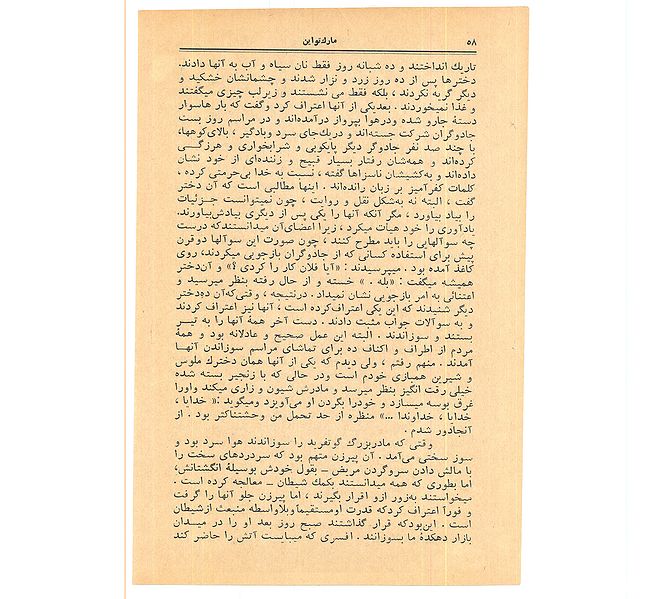 ۵۸ مارك تواین
تاریك انداختند و ده شبانه روز فقط نان سیاه و آب به آنها دادند.
دخترها پس از ده روز زرد و نزار شدند و چشمانشان خشکید و
دیگر گریه نکردند ، بلکه فقط می نشستند و زیرلب چیزی میگفتند
و غذا نمیخوردند . بعدیکی از آنها اعتراف کرد وگفت که بار هاسوار
دستهٔ جارو شده ودرهوا بپرواز درآمده‌اند و در مراسم روز بست
جادوگران شرکت جسته‌اند و دریك‌جای سرد وبادگیر ، بالای‌کوهها،
با چند صد نفر جادوگر دیگر پایکوبی و شرابخواری و هرزگــی
کرده‌اند و همه‌شان رفتار بسیار قبیح و زننده‌ای از خود نشان
داده‌اند و به‌کشیشان ناسزاها گفته ، نسبت به خدا بی‌حرمتی کرده ،
کلمات کفرآمیز بر زبان رانده‌اند . اینها مطالبی است که آن دختر
گفت ، البته نه به‌شکل نقل و روایت ، چون نمیتوانست جزئیات
را بیاد بیاورد ، مگر آنکه آنها را یکی پس از دیگری بیادش‌بیاورند.
یادآوری را خود هیأت میکرد ، زیرا اعضای‌آن میدانستندکه درست
چه سوآلهایی را باید مطرح کنند ، چون صورت این سوآلها دوقرن
پیش برای استفاده کسانی که از جادوگران بازجویی میکردند، روی
کاغذ آمده بود . میپرسیدند : «آیا فلان کار را کردی ؟» و آن‌دختر
همیشه میگفت : «بله . » خسته و از حال رفته بنظر میرسید و
اعتنائی به امر بازجویی نشان نمیداد . درنتیجه ، وقتی‌که‌آن ده‌دختر
دیگر شنیدند که این یکی اعتراف‌کرده است ، آنها نیز اعتراف کردند
و به سوآلات جواب مثبت دادند . دست آخر همهٔ آنها را به تیــر
بستند و سوزاندند . البته این عمل صحیح و عادلانه بود و همهٔ
مردم از اطراف و اکناف ده برای تماشای مراسم سوزاندن آنهــا
آمدند . منهم رفتم ، ولی دیدم که یکی از آنها همان دخترك ملوس
و شیرین همبازی خودم است ودر حالی که با زنجیر بسته شده
خیلی رقت انگیز بنظر میرسد و مادرش شیون و زاری میکند واورا
غرق بوسه میسازد و خودرا بگردن او می‌آویزد ومیگوید :« خدایا ،
خدایا ، خداوندا ...» منظره از حد تحمل من وحشتناکتر بود . از
آنجادور شدم .
وقتی که مادربزرگ گوتفرید را سوزاندند هوا سرد بود و
سوز سختی می‌آمد . آن پیرزن متهم بود که سردردهای سخت را
با مالش دادن سروگردن مریض ــ بقول خودش بوسیلهٔ انگشتانش،
اما بطوری که همه میدانستند بکمك شیطان ــ معالجه کرده است .
میخواستند به‌زور ازو اقرار بگیرند ، اما پیرزن جلو آنها را گرفت
و فوراً اعتراف کردکه قدرت اومستقیماًوبلاواسطه منبعث ازشیطان
است . این‌بودکه قرار گذاشتند صبح روز بعد او را در میــدان
بازار دهکدهٔ ما بسوزانند . افسری که میبایست آتش را حاضر کند